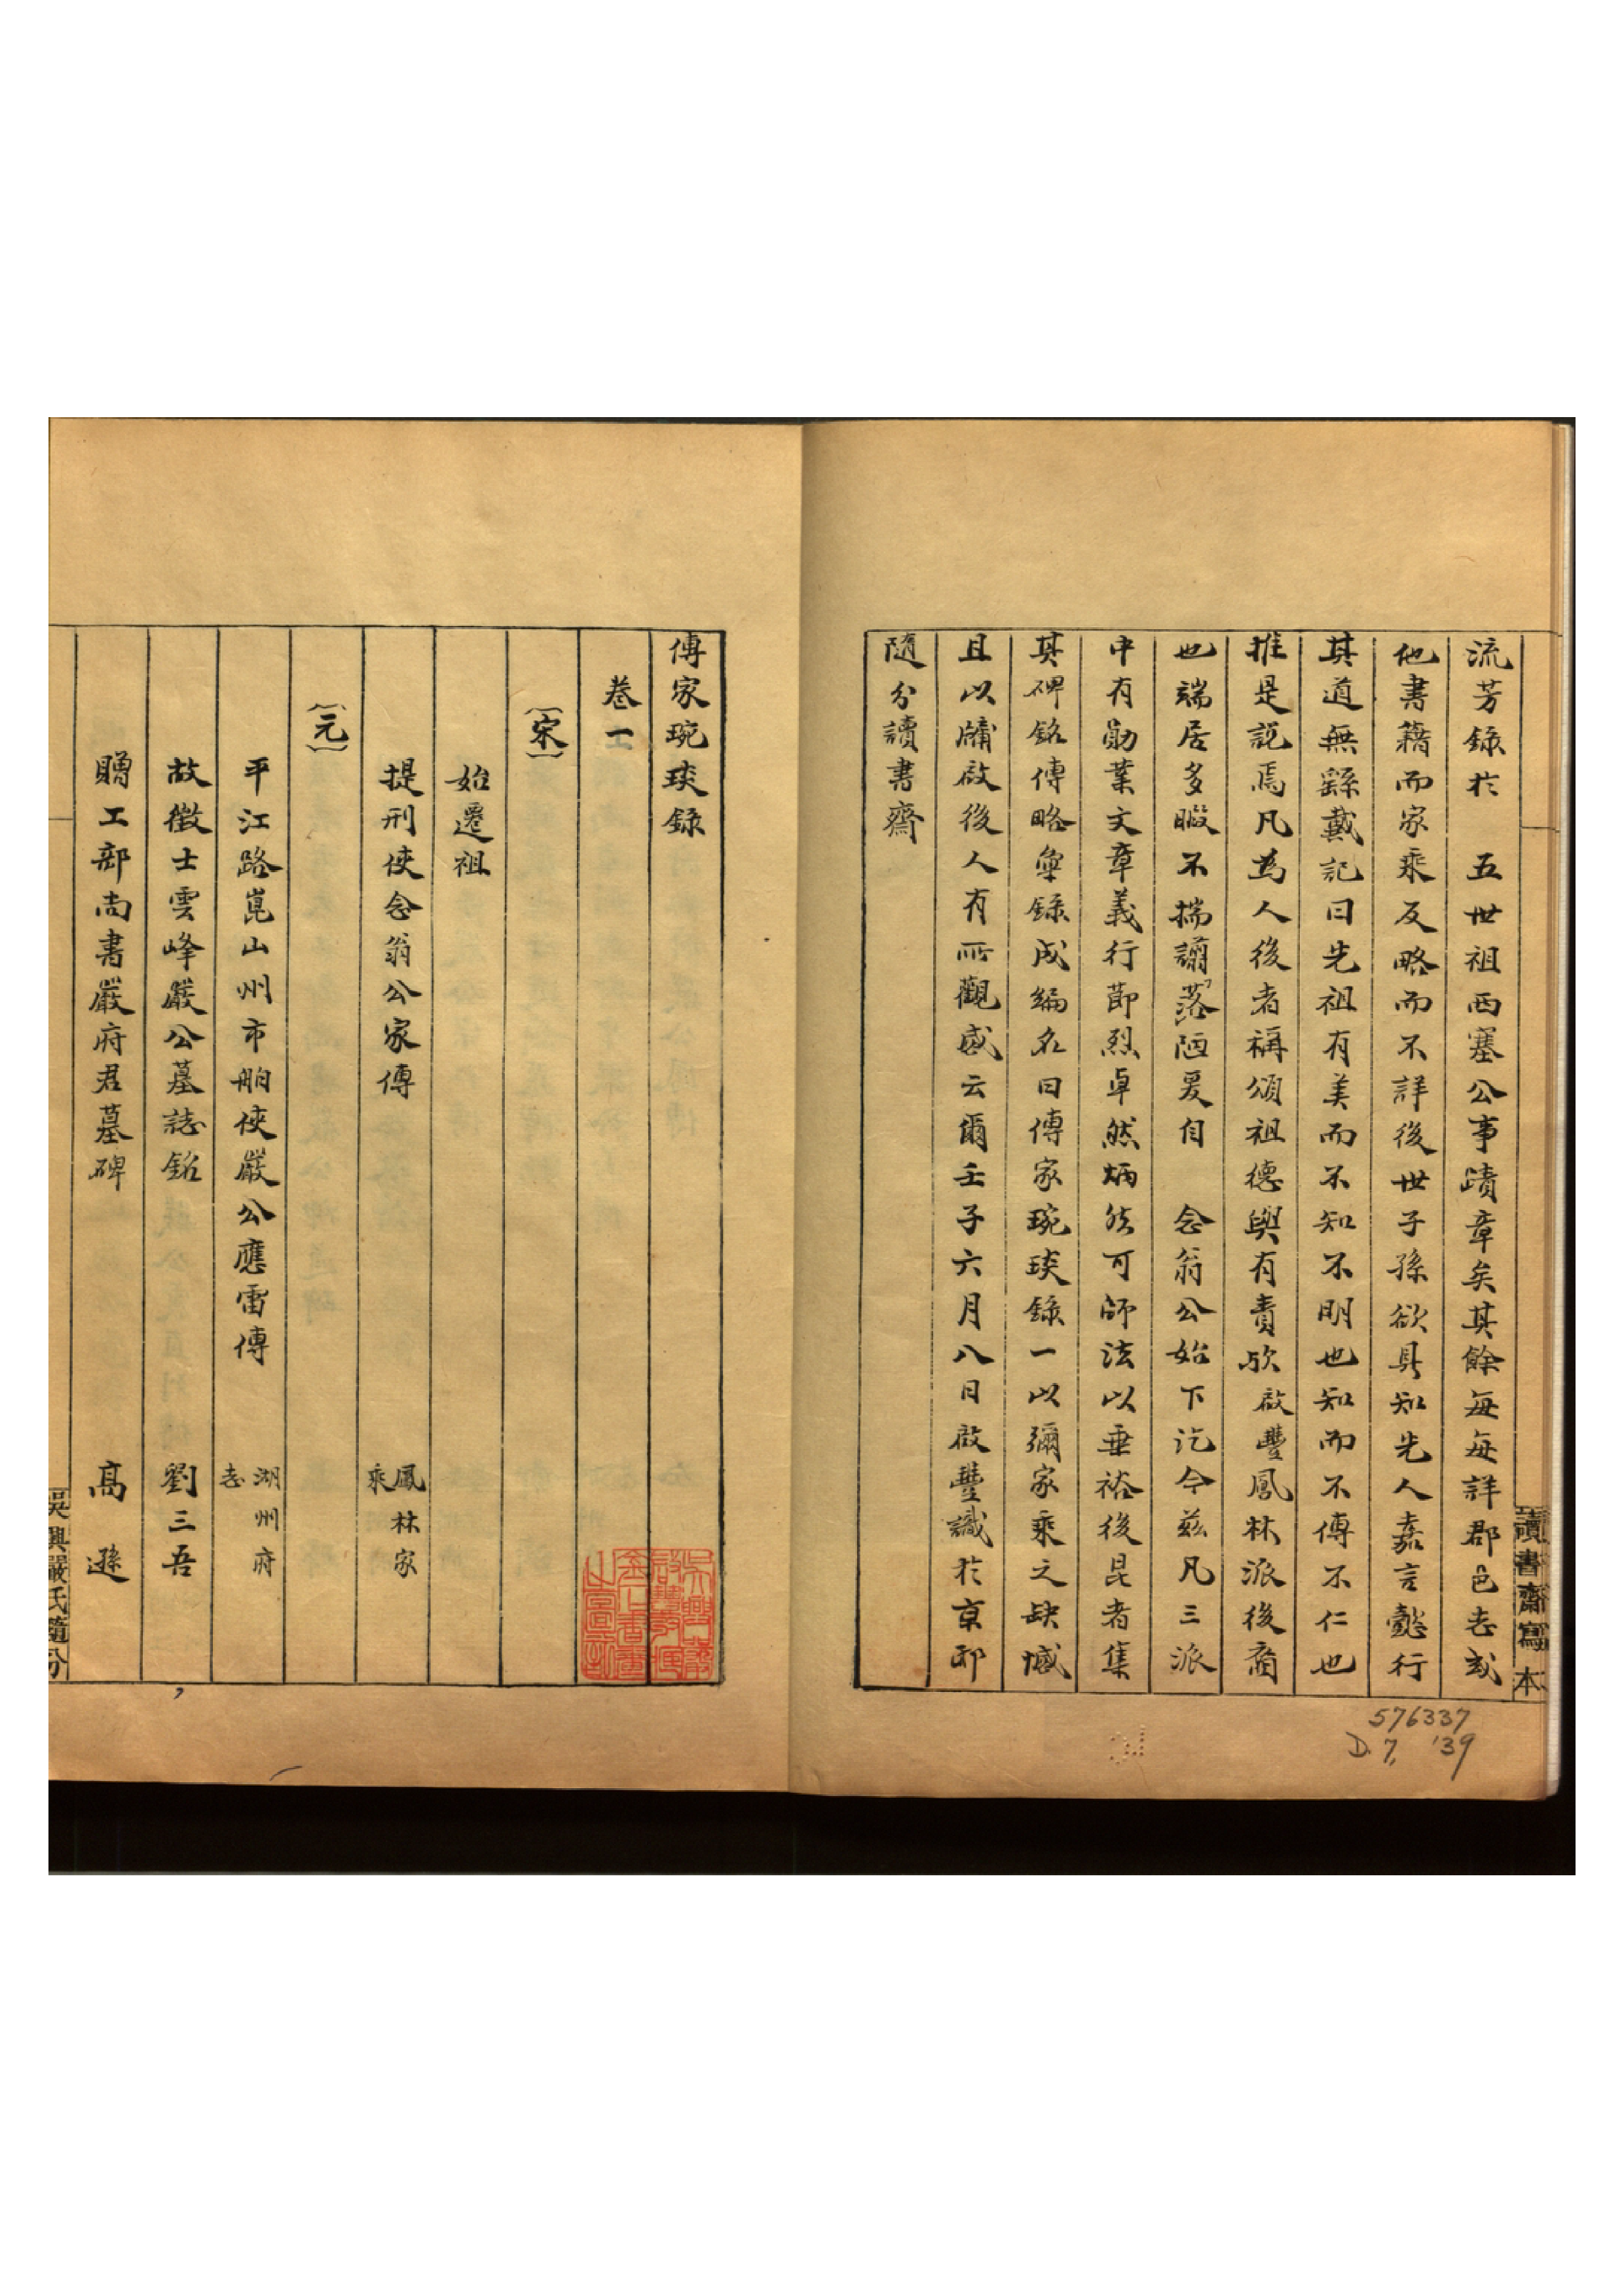 流芳錄於　五世祖西塞公事蹟章矣其餘每每詳郡邑志或
他書籍而家乘反略而不詳後世子孫欲具知先人嘉言懿行
其道無繇戴記曰先祖有美而不知不明也知而不傳不仁也
推是說焉凡為人後者稱頌祖德與有責歟啟豐鳳林派後裔
也端居多暇不揣譾落陋爰自　念翁公始下訖今茲凡三派
中有勛業文章義行節烈卓然炳然可師法以垂裕後昆者集
其碑銘傳略彙錄成編名曰傳家琬琰錄一以彌家乘之缺憾
且以牖啟後人有所觀感云爾壬子六月八日啟豐識於京邸
隨分讀書齋
讀書齋寫本
576337
D. 7, '39
傳家琬琰錄
卷一
〔宋〕
始遷祖
提刑使念翁公家傳　鳳林家乘
〔元〕
平江路崑山州市舶使嚴公應雷傳　湖州府志
故徵士雲峰嚴公墓誌銘　劉三吾
贈工部尚書嚴府君墓碑　高遜
吳興嚴氏隨分